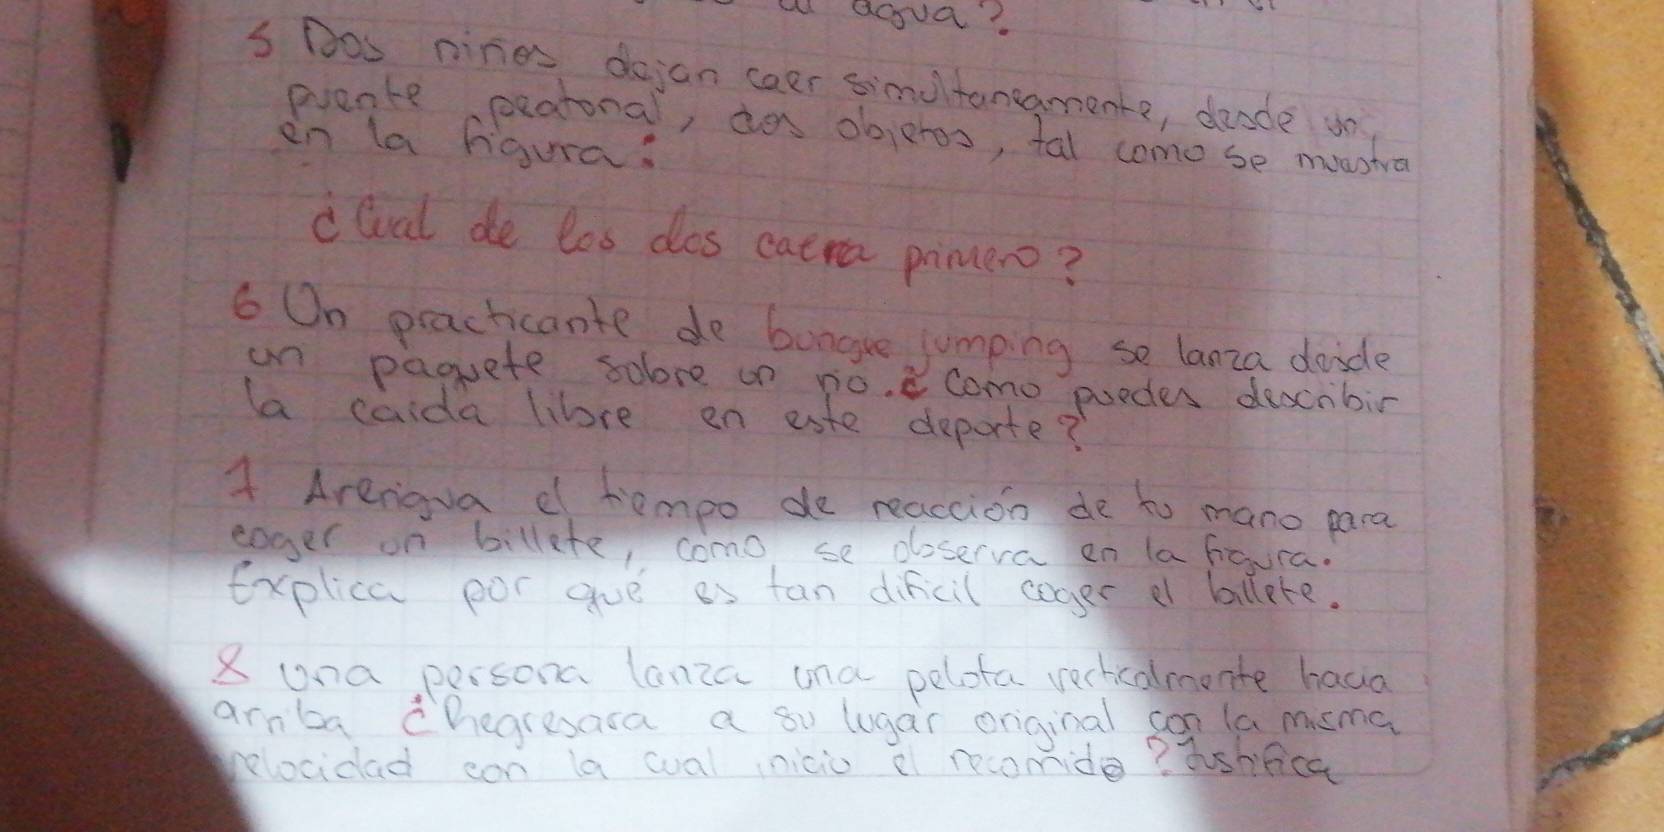 agua?
5 Dos niños dejan caer simultaneamente, desde un
puente peatonal, dos objetos, tal como se muestra
en la figura:
¿Cual de los dos caera primero?
6 Un practicante de bungue jumping se lanza desde
un paquete sobre un rio. ¿Como puedes describir
la caida libre en este deporte?
7 Averigua el tiempo de reacción de tu mano para
coger un billete, como se observa en la figura.
Explica por qué es tan dificil coger el billete.
8 una persona lanza una pelota verticalmente hacia
arriba ¿Regresara a su lugar original con la misma
velocidad con la cual inicio el recorrido? Justifica